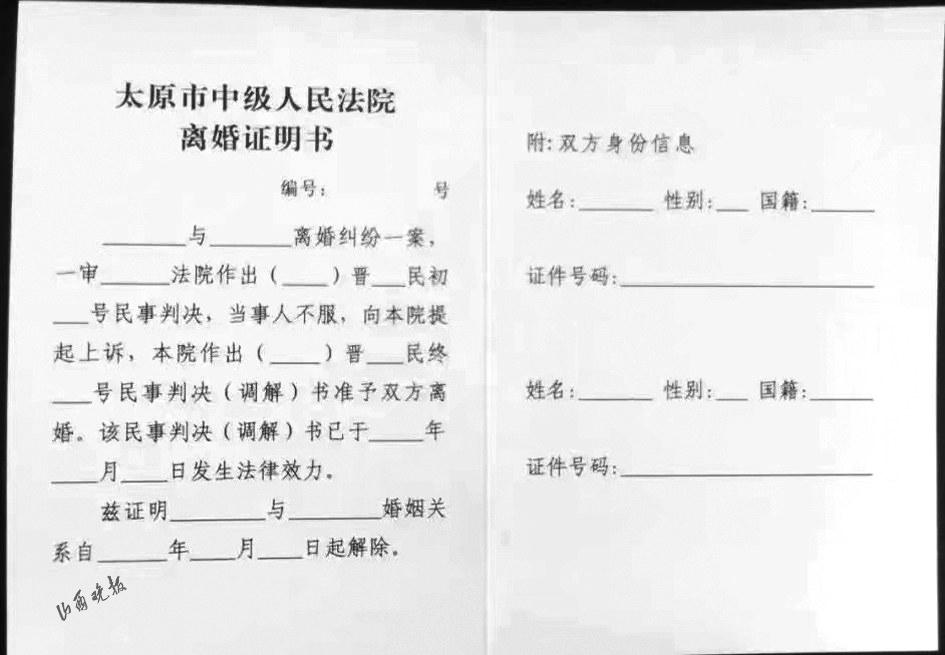 太原市中级人民法院
离婚证明书
编号： 号
________与________离婚纠纷一案，
一审______法院作出（____）晋___民初
___号民事判决，当事人不服，向本院提
起上诉，本院作出（____）晋___民终
___号民事判决（调解）书准予双方离
婚。该民事判决（调解）书已于_____年
____月____日发生法律效力。
兹证明________与________婚姻关
系自______年____月____日起解除。
山西晚报
附：双方身份信息
姓名：______ 性别：___ 国籍：_____
证件号码：____________________
姓名：______ 性别：___ 国籍：_____
证件号码：____________________